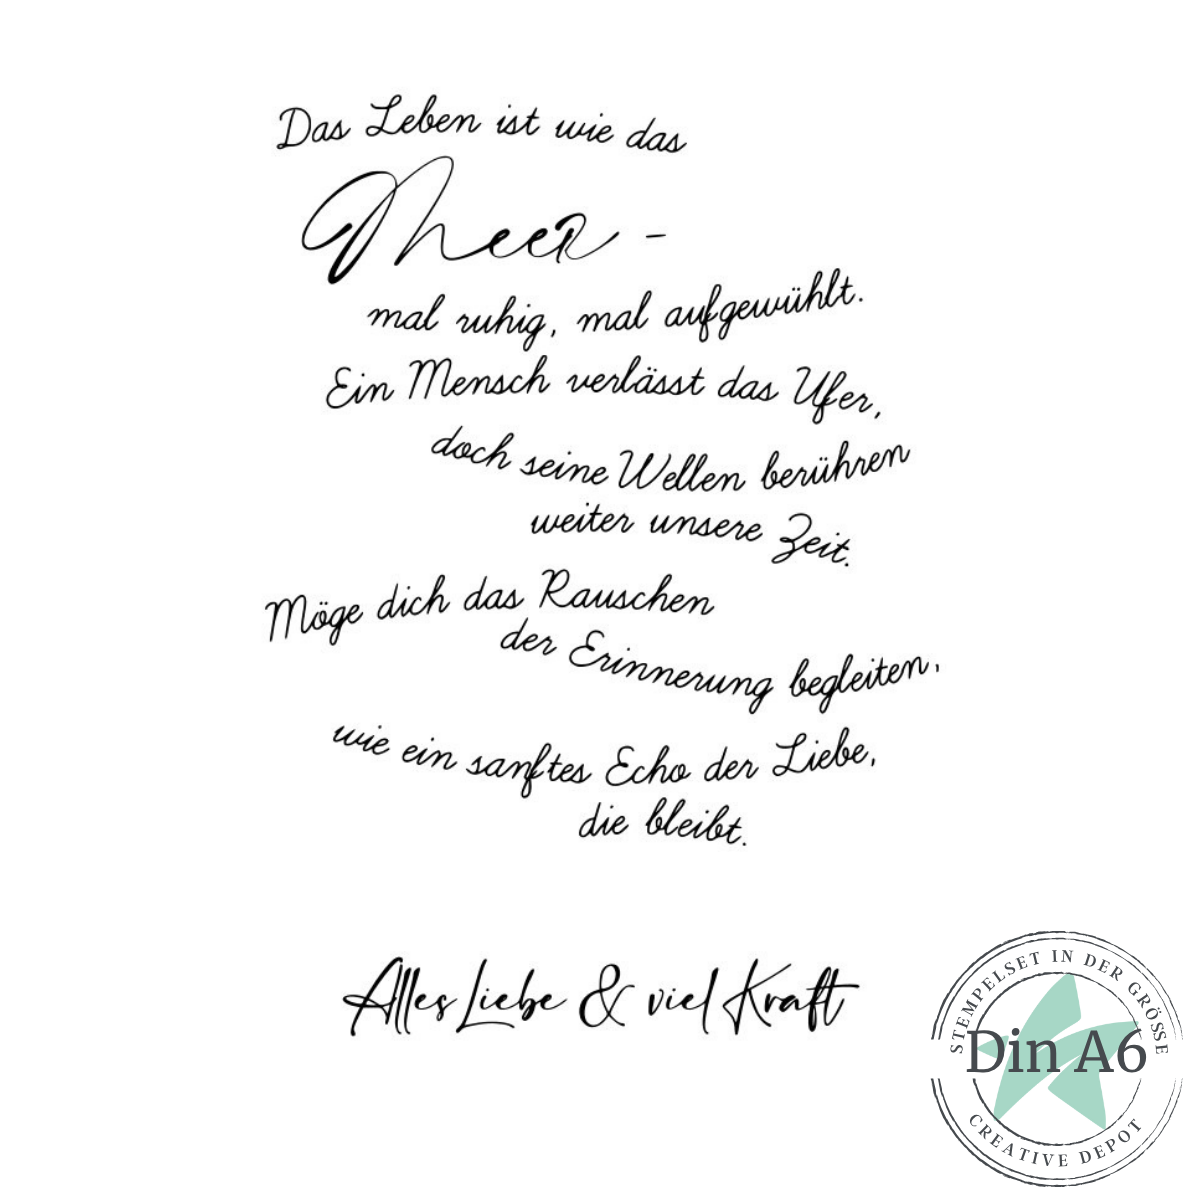 Das Leben ist wie das
Meer -
mal ruhig, mal aufgewühlt.
Ein Mensch verlässt das Ufer,
doch seine Wellen berühren
weiter unsere Zeit.
Möge dich das Rauschen
der Erinnerung begleiten,
wie ein sanftes Echo der Liebe,
die bleibt.
Alles Liebe & viel Kraft
STEMPELSET IN DER GRÖSSE
Din A6
CREATIVE DEPOT